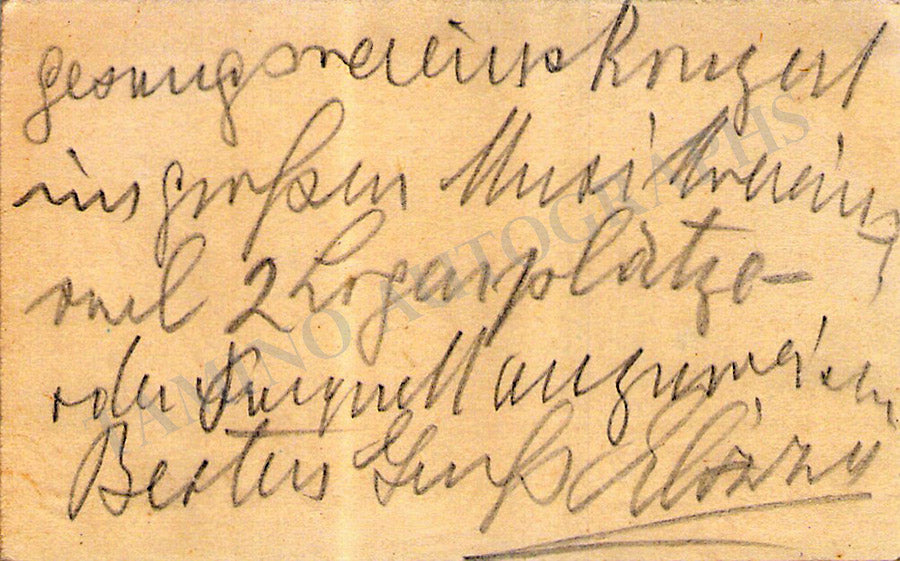 gesangsvereinskonzert
im großen Musikverein
2 Logenplätze
oder Parquett anzuweisen
Besten Gruß
TAMINO AUTOGRAPHS